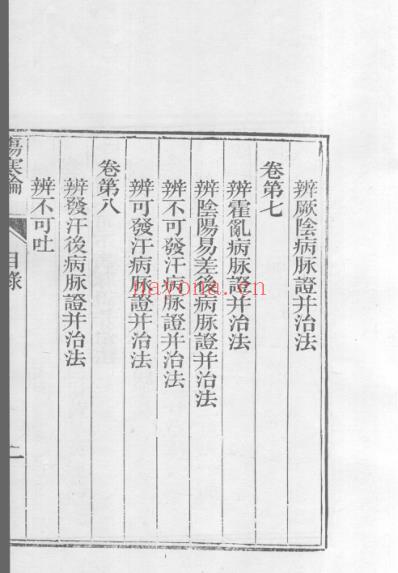 辨厥陰病脉證并治法
卷第七
辨霍亂病脉證并治法
辨陰陽易差後病脉證并治法
辨不可發汗病脉證并治法
辨可發汗病脉證并治法
卷第八
辨發汗後病脉證并治法
辨不可吐
傷寒論 目錄 二
nayona.cn